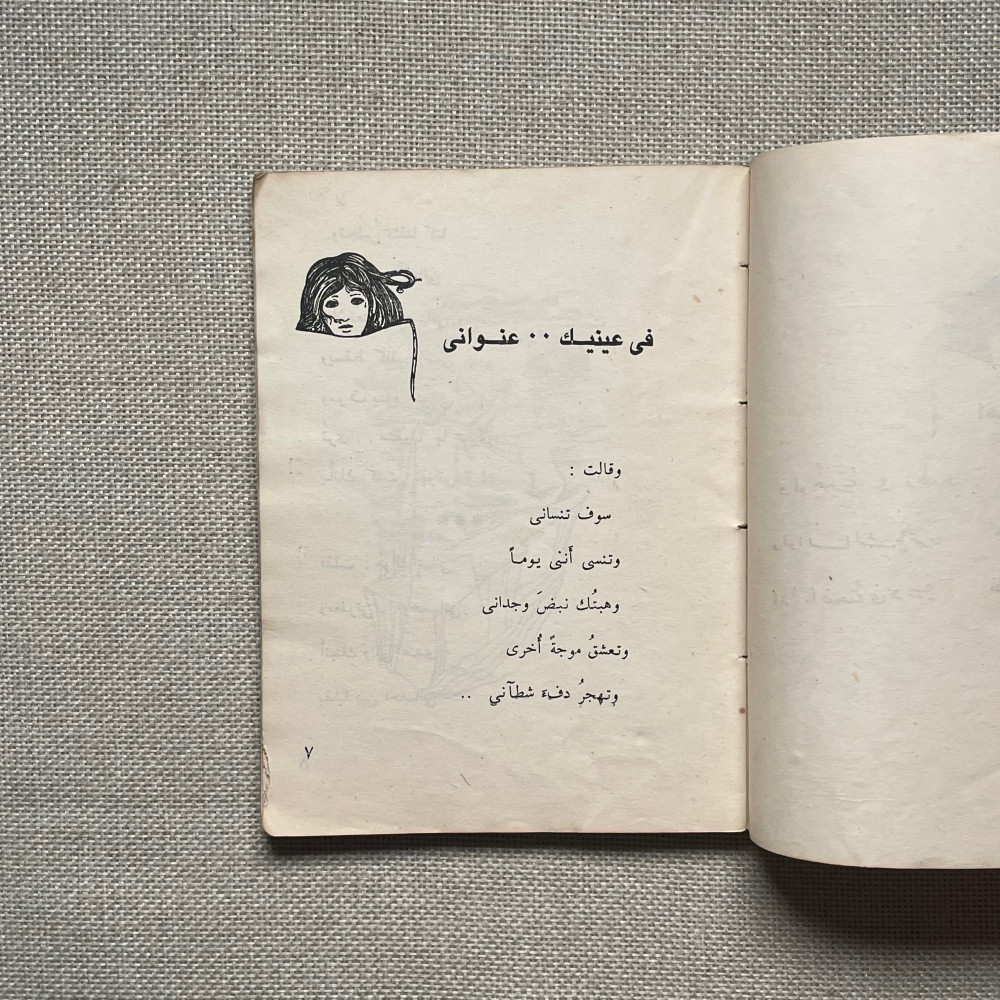 فى عينيك ٠٠ عنوانى
وقالت :
سوف تنسانى
وتنسى أَننى يوماً
وهبتُك نبضَ وجدانى
وتعشقُ موجةً أُخرى
وتهجرُ دفءَ شطآني ..
٧